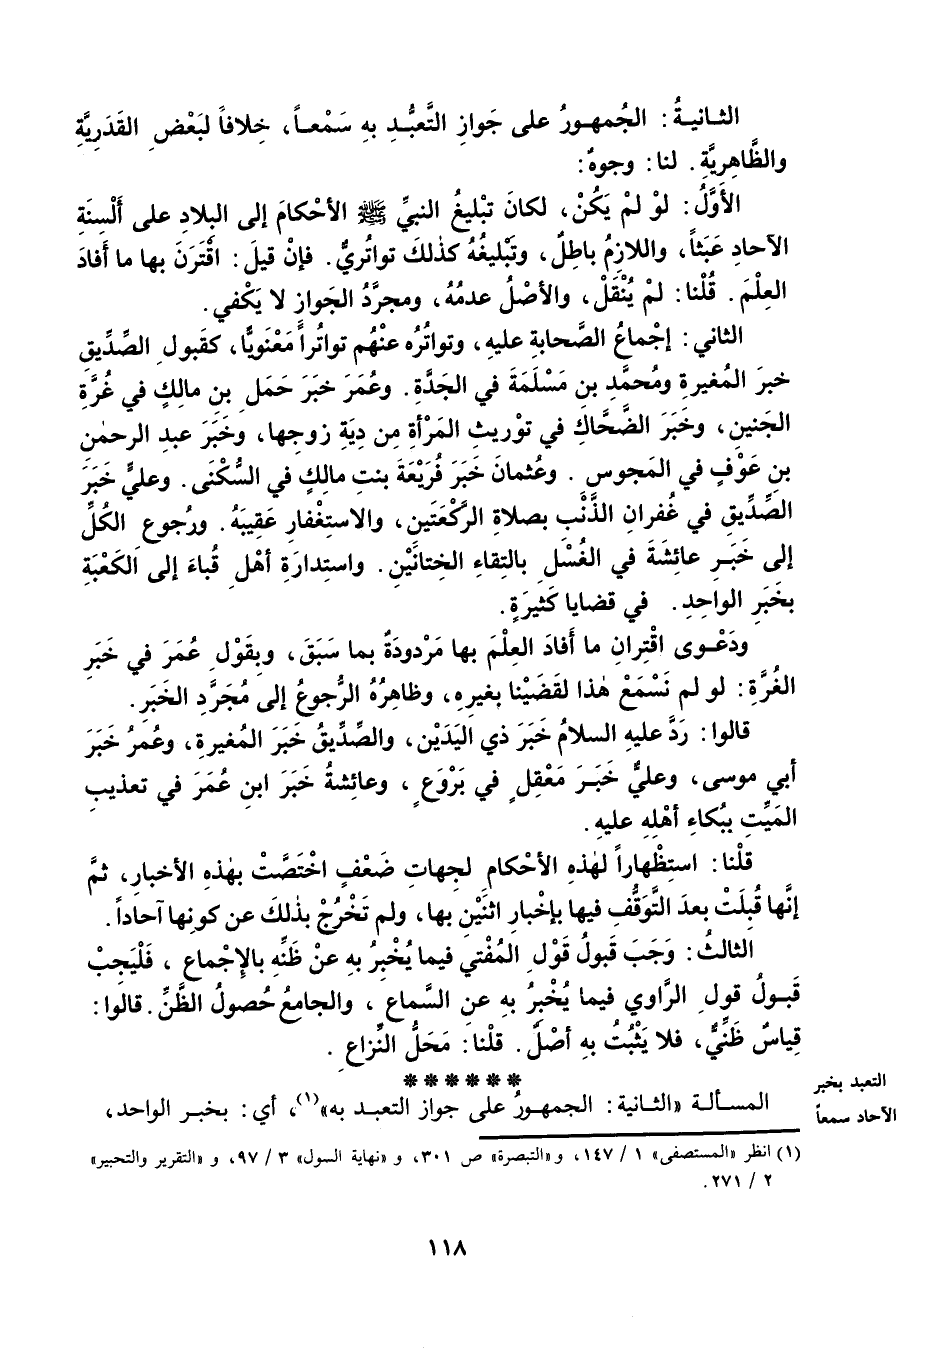 الثانيةُ: الجُمهورُ على جَوازِ التَّعبُّدِ به سَمْعاً، خِلافاً لبَعْضِ القَدَريَّةِ
والظَّاهِريَّةِ. لنا: وجوهٌ:
الأوَّلُ: لوْ لمْ يَكُنْ، لكانَ تبْليغُ النبيِّ ﷺ الأحْكامَ إلى البلادِ على ألْسِنَةِ
الآحادِ عَبَثاً، واللازِمُ باطِلٌ، وتَبْليغُهُ كذٰلكَ تواتُريٌّ. فإنْ قيلَ: اقْتَرَنَ بها ما أفادَ
العِلْمَ. قُلْنا: لمْ يُنْقَلْ، والأصْلُ عدمُهُ، ومجرَّدُ الجَوازِ لا يَكْفي.
الثاني: إجْماعُ الصَّحابةِ عليهِ، وتواتُرُه عنْهُم تواتُراً مَعْنَويًّا، كقَبولِ الصِّدِّيقِ
خبرَ المُغيرةِ ومُحمَّدِ بن مَسْلَمَةَ في الجَدَّةِ. وعُمَرَ خبَرَ حَمَلِ بنِ مالِكٍ في غُرَّةِ
الجَنينِ، وخَبَرَ الضَّحَّاكِ في توْريثِ المَرْأةِ مِن دِيَةِ زوجِها، وخَبَرَ عبدِ الرحمٰن
بنِ عَوْفٍ في المَجوسِ. وعُثمانَ خَبَرَ فُرَيْعَةَ بنتِ مالِكٍ في السُّكْنَى. وعليٍّ خَبَرَ
الصِّدِّيقِ في غُفرانِ الذَّنْبِ بصلاةِ الرَّكْعَتَينِ، والاستِغْفارِ عَقِيبَهُ. ورُجوعِ الكُلِّ
إلى خَبَرِ عائشَةَ في الغُسْلِ بالتِقاءِ الخِتانَيْنِ. واستِدارَةِ أهْلِ قُباءَ إلى الكَعْبَةِ
بخَبَرِ الواحِدِ. في قضايا كَثيرَةٍ.
ودَعْوى اقْتِرانِ ما أفادَ العِلْمَ بها مَرْدودَةٌ بما سَبَقَ، وبِقَوْلِ عُمَرَ في خَبَرِ
الغُرَّةِ: لو لم نَسْمَعْ هٰذا لقَضَيْنا بغيرِهِ، وظاهِرُهُ الرُّجوعُ إلى مُجَرَّدِ الخَبَرِ.
قالوا: رَدَّ عليهِ السلامُ خَبَرَ ذي اليَدَيْنِ، والصِّدِّيقُ خَبَرَ المُغيرةِ، وعُمرُ خَبَرَ
أبي موسى، وعليٌّ خَبَرَ مَعْقِلٍ في بَرْوَعٍ، وعائشةُ خَبَرَ ابنِ عُمَرَ في تعذيبِ
المَيِّتِ بِبُكاءِ أهْلِهِ عليهِ.
قلْنا: استِظْهاراً لهٰذهِ الأحْكامِ لجِهاتِ ضَعْفٍ اخْتَصَّتْ بهٰذهِ الأخبارِ، ثمَّ
إنَّها قُبِلَتْ بعدَ التَّوَقُّفِ فيها بإخْبارِ اثنَيْنِ بها، ولم تَخْرُجْ بذٰلكَ عن كونِها آحاداً.
الثالثُ: وَجَبَ قَبولُ قَوْلِ المُفْتي فيما يُخْبِرُ بهِ عنْ ظَنِّه بالإجْماعِ، فَلْيَجِبْ
قَبولُ قولِ الرَّاوي فيما يُخْبِرُ بهِ عنِ السَّماعِ، والجامعُ حُصولُ الظَّنِّ. قالوا:
قِياسٌ ظَنِّيٌّ، فلا يَثْبُتُ بهِ أصْلٌ. قلْنا: مَحَلُّ النِّزاعِ.
******
التعبد بخبر
الآحاد سمعاً
المسألة «الثانية: الجمهورُ على جواز التعبد به»(١)، أي: بخبر الواحد،
(١) انظر «المستصفى» ١ / ١٤٧، و«التبصرة» ص ٣٠١، و «نهاية السول» ٣ / ٩٧، و «التقرير والتحبير»
٢ / ٢٧١.
١١٨